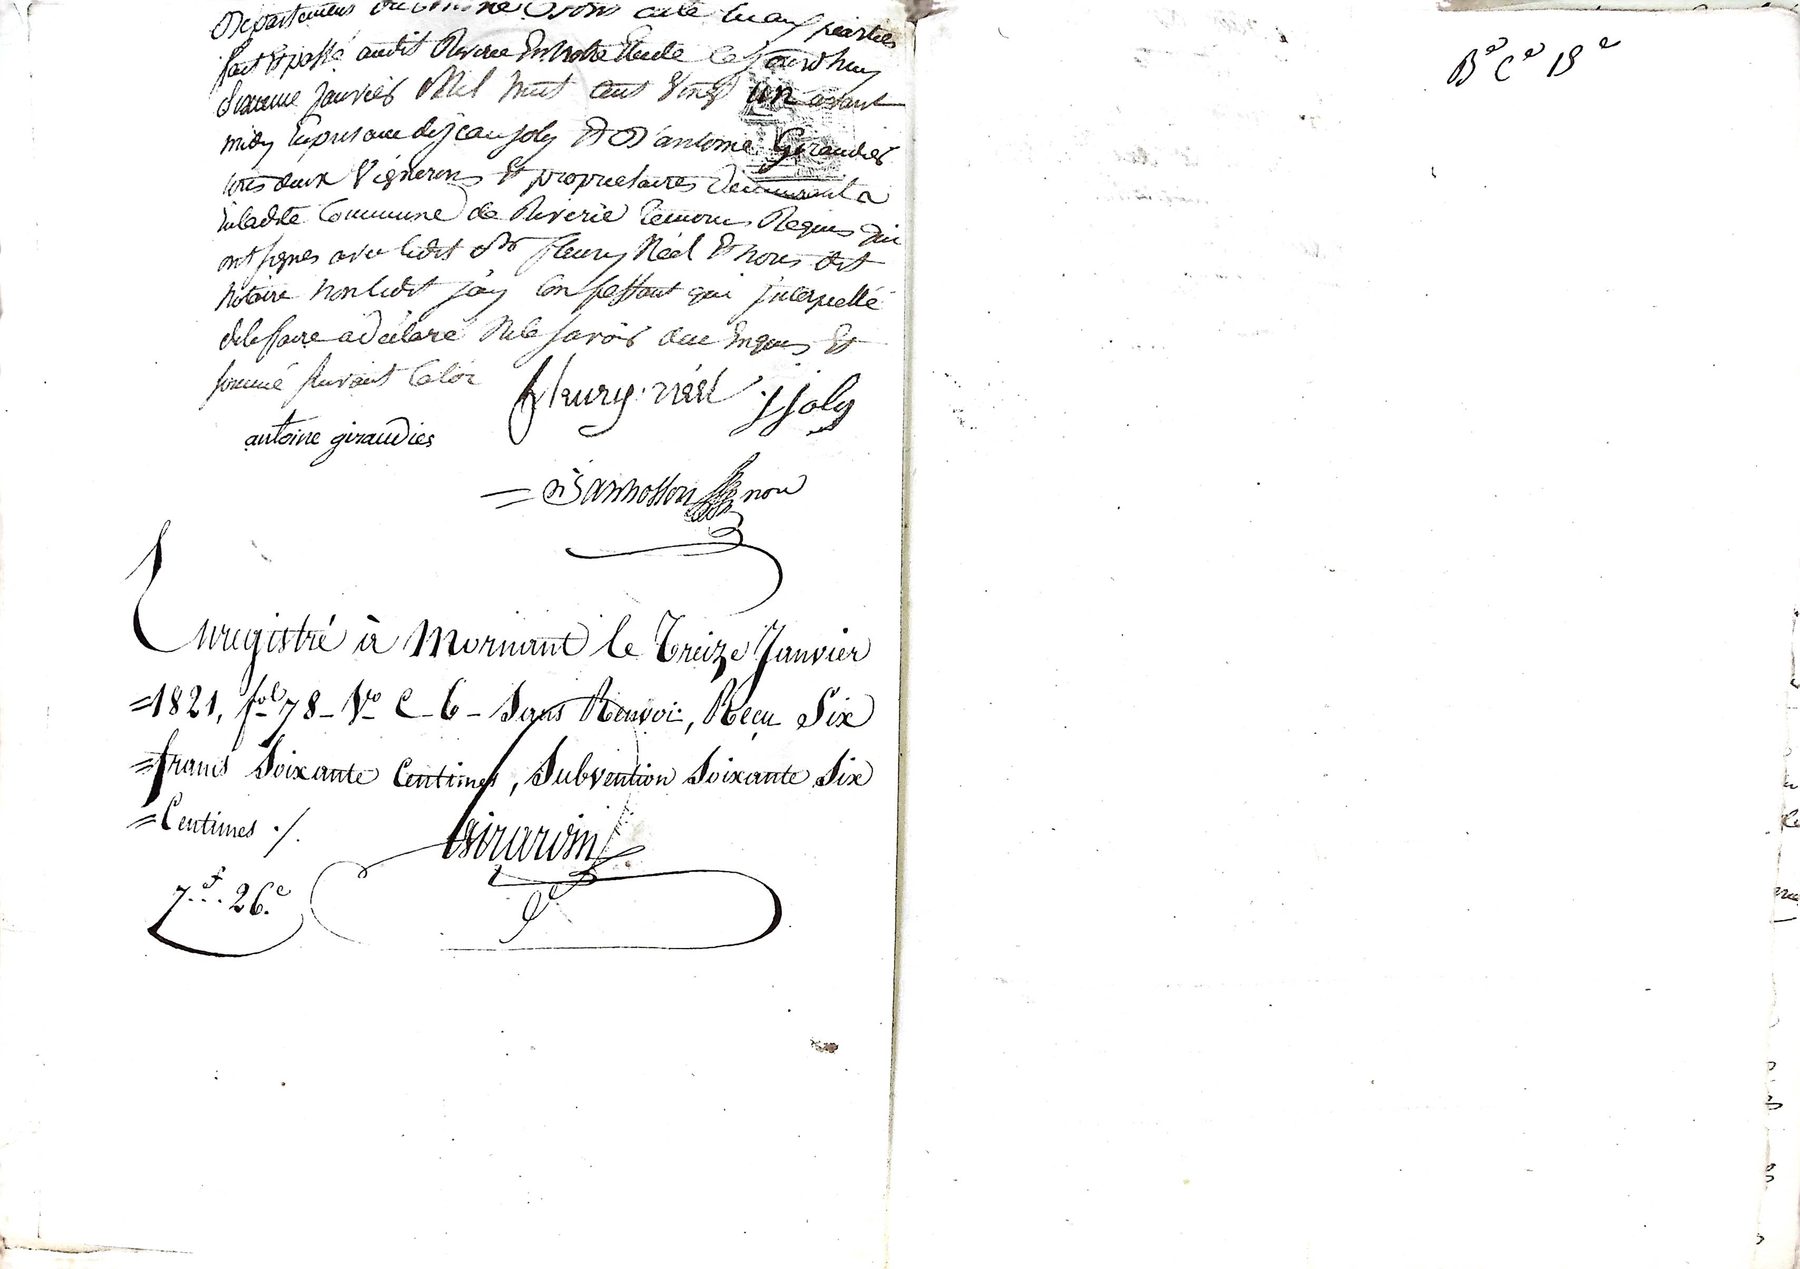 Departement du Rhone dont acte lu aux parties
fait et passé audit Riverie En notre Etude cejourdhuy
Sixieme janvier Mil huit cent Vingt un avant
midy En presence de jean joly Et D'antoine Giraudier
tous deux Vignerons Et proprietaires demeurant a
ladite Commune de Riverie temoins Requis qui
ont signes avec ledit fleury Néel Et nous dit
notaire non ledit jay Confessant qui jnterpellé
de le faire a declaré Ne le savoir de ce Enquis Et
sommé suivant la loi
fleury néel j joly
antoine giraudier
nore
Enregistré à Mornant le Treize Janvier
=1821, fol 78 Vo C 6 Sans Renvoi, Reçu Six
=francs Soixante Centimes, Subvention Soixante Six
=Centimes ./.
Girardin
7.f. 26.c